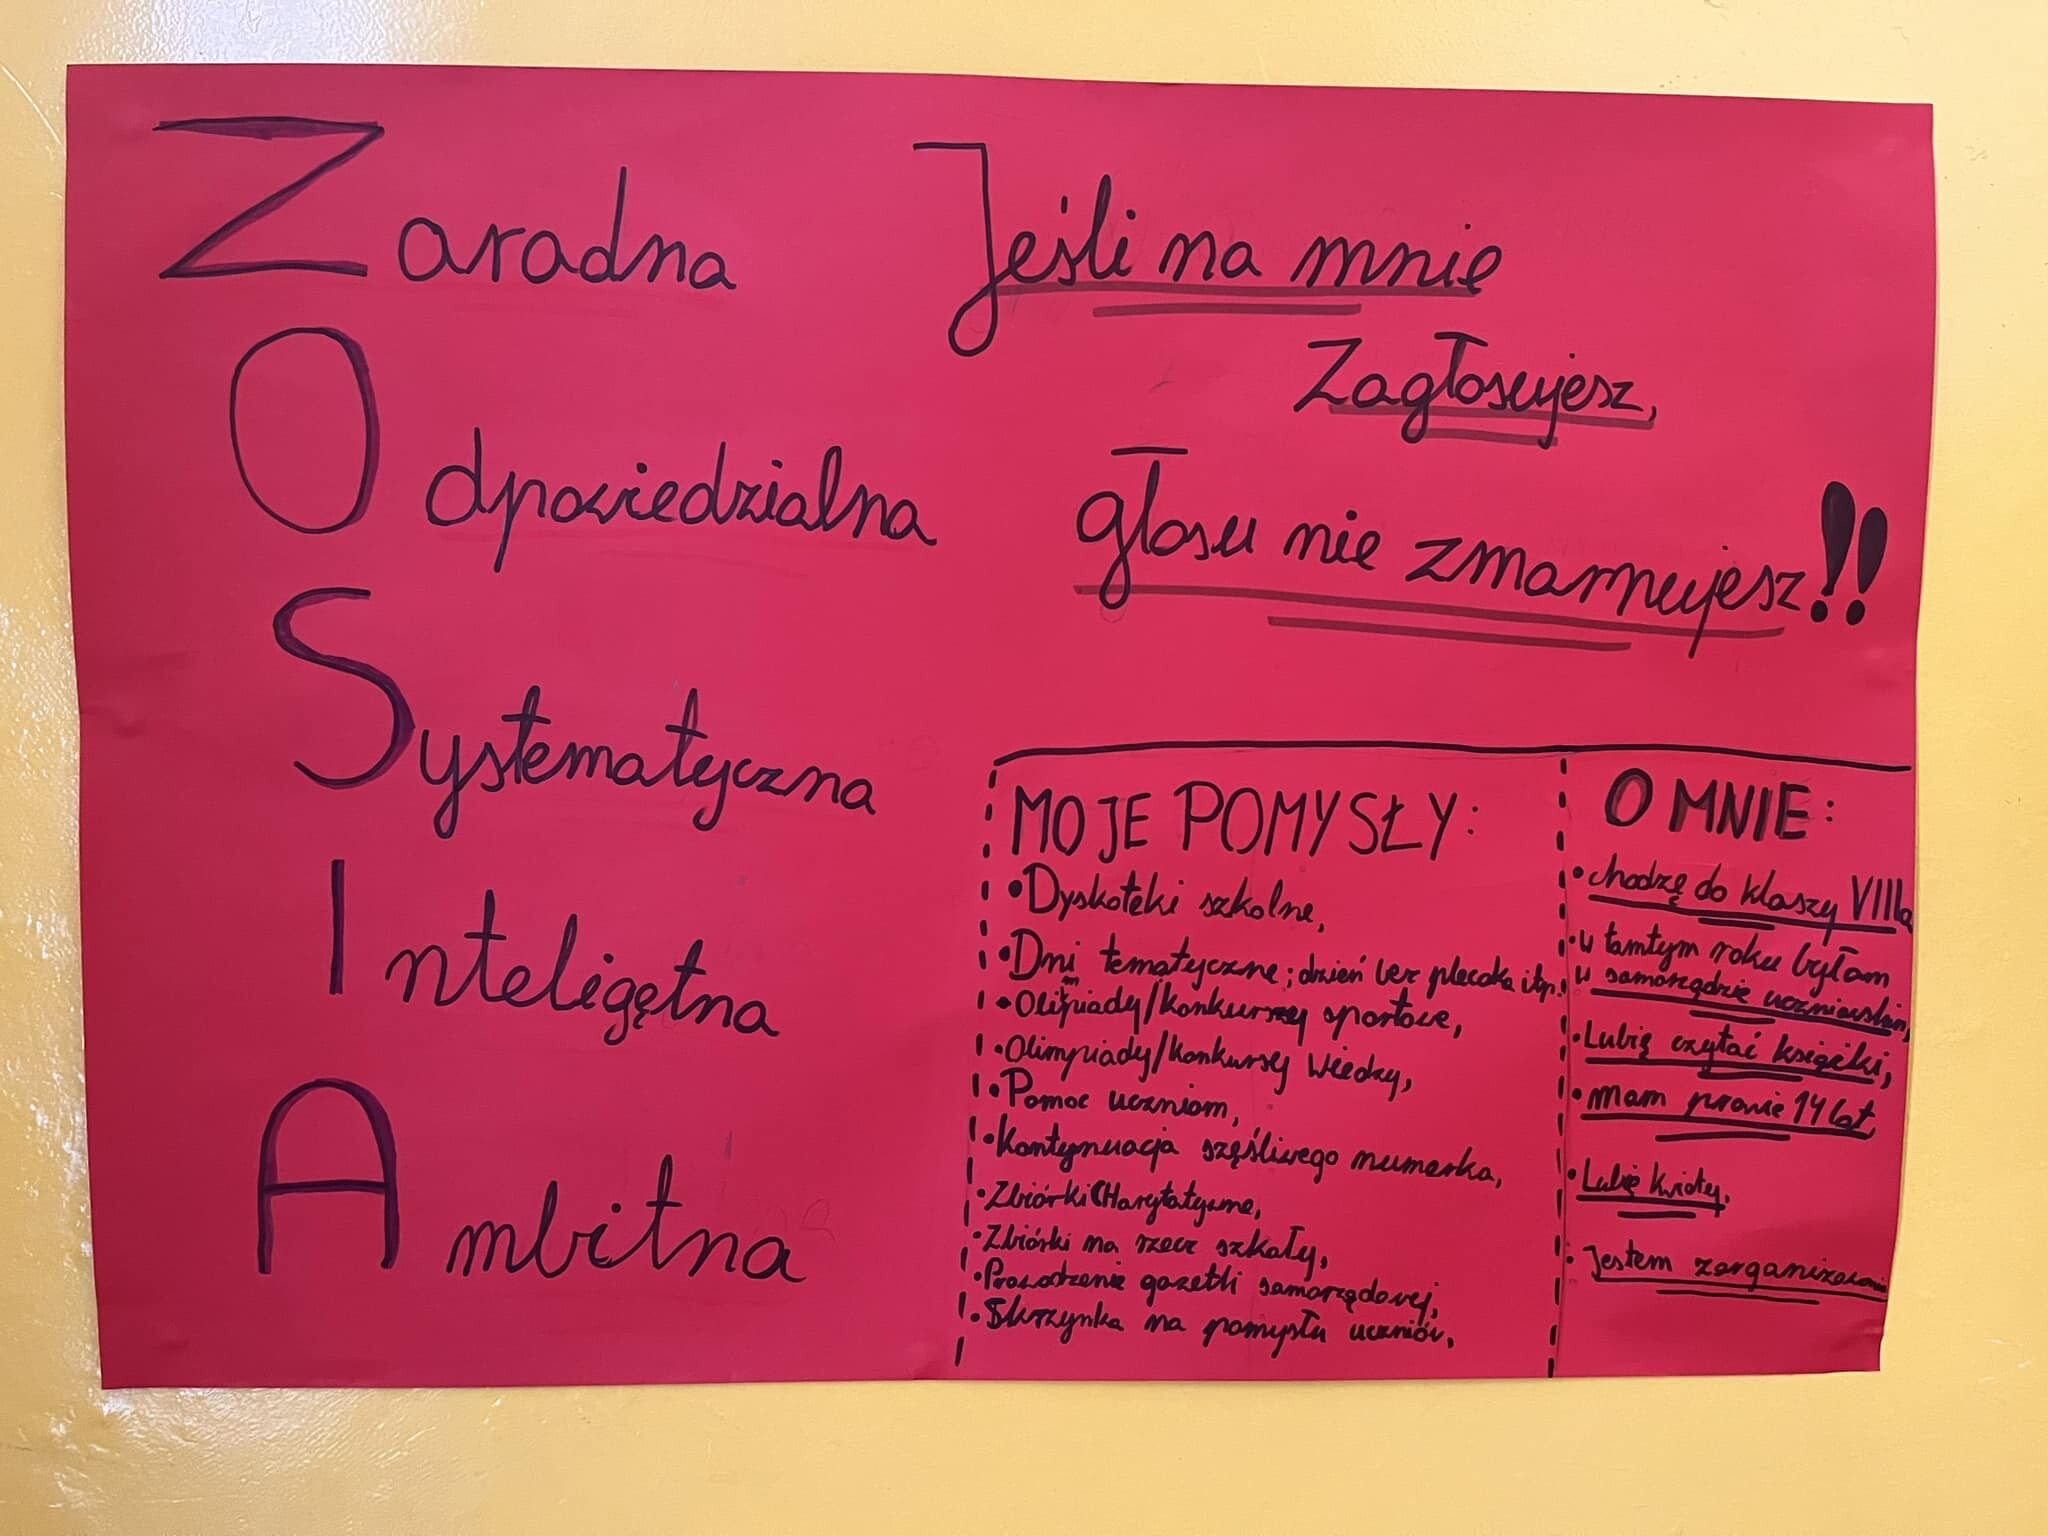 Zaradna
Odpowiedzialna
Systematyczna
Inteligętna
Ambitna
Jeśli na mnie
Zagłosujesz,
głosu nie zmarnujesz!!
MOJE POMYSŁY:
• Dyskoteki szkolne,
• Dni tematyczne; dzień bez plecaka itp.
• Olimpiady/konkursy sportowe,
• Olimpiady/konkursy wiedzy,
• Pomoc uczniom,
• Kontynuacja szczęśliwego numerka,
• Zbiórki Charytatywne,
• Zbiórki na rzecz szkoły,
• Prowadzenie gazetki samorządowej,
• Skrzynka na pomysły uczniów,
O MNIE:
• chodzę do klasy VIIIa
• w tamtym roku byłam
w samorządzie uczniowskim,
• Lubię czytać książki,
• mam prawie 14 lat,
• Lubię kwiaty,
• Jestem zorganizowana